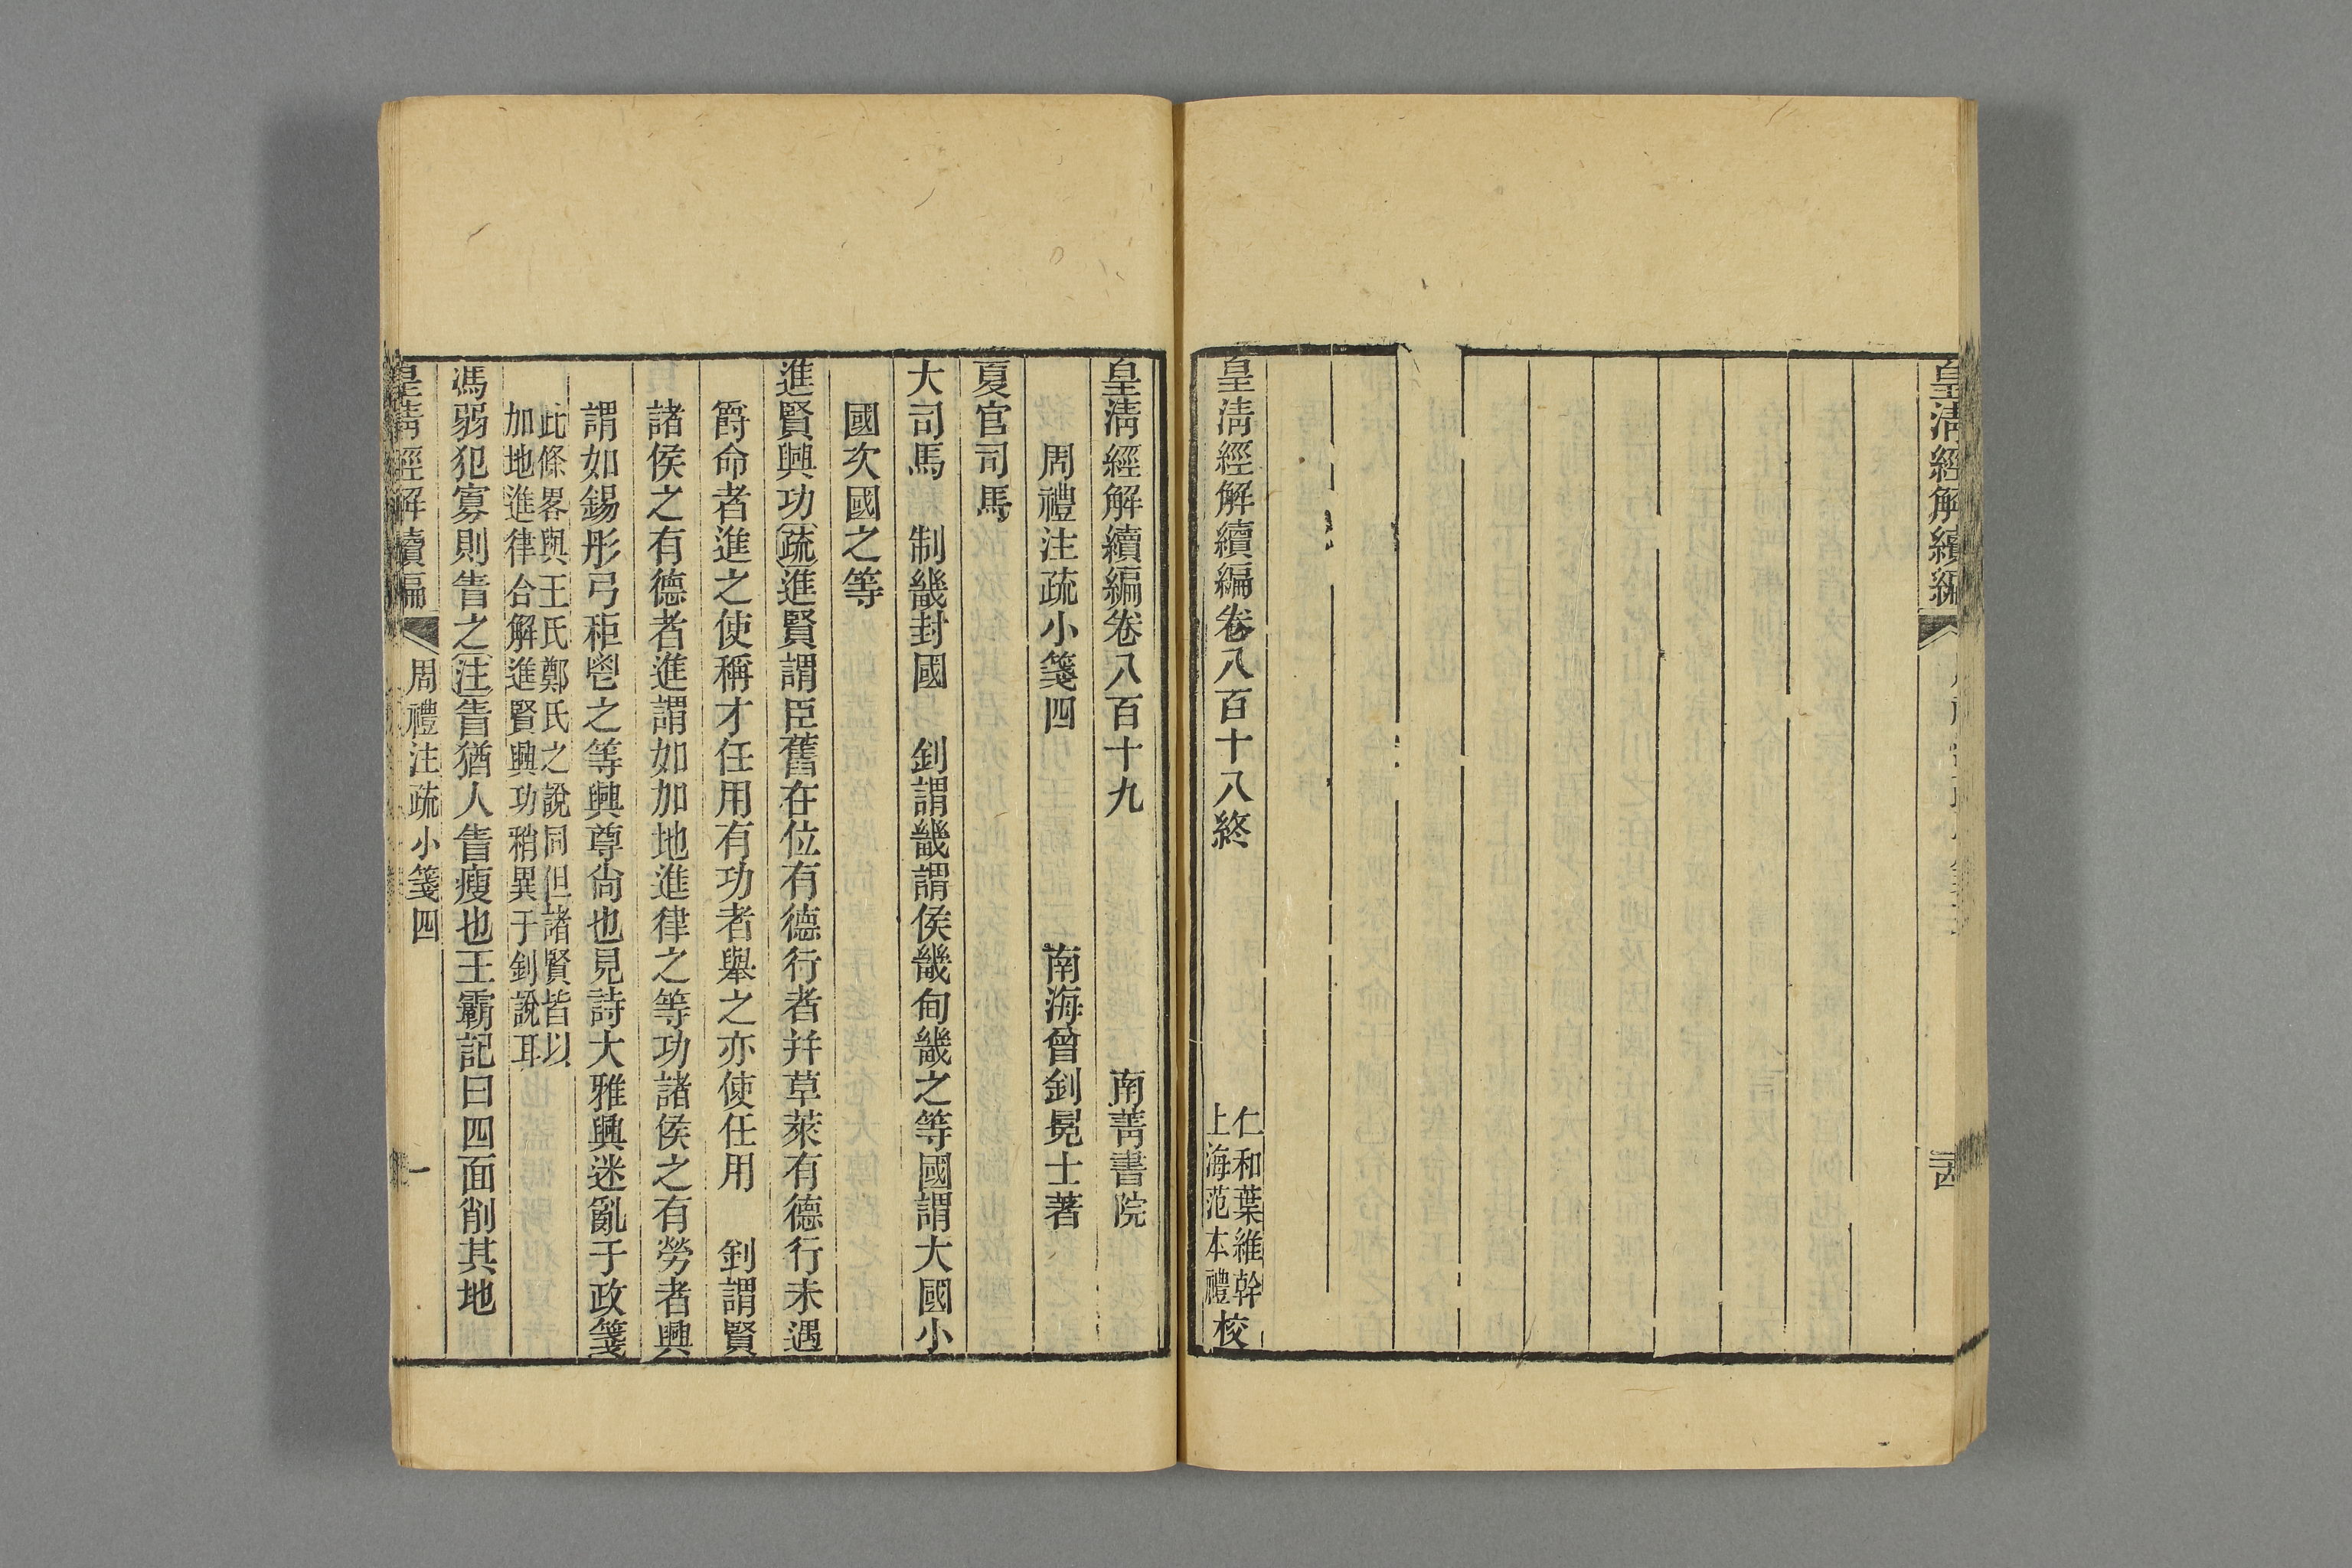 皇清經解續編
皇清經解續編卷八百十八終
仁和葉維幹
上海范本禮校
皇清經解續編卷八百十九 南菁書院
周禮注疏小箋四 南海曾釗冕士著
夏官司馬
大司馬 制畿封國 釗謂畿謂侯畿甸畿之等國謂大國小
國次國之等
進賢興功疏進賢謂臣舊在位有德行者并草萊有德行未遇
爵命者進之使稱才任用有功者舉之亦使任用 釗謂賢
諸侯之有德者進謂如加地進律之等功諸侯之有勞者興
謂如錫彤弓秬鬯之等興尊尙也見詩大雅興迷亂于政箋
此條畧與王氏鄭氏之說同但諸賢皆以
加地進律合解進賢興功稍異于釗說耳
馮弱犯寡則眚之注眚猶人眚瘦也王霸記曰四面削其地
皇清經解續編 周禮注疏小箋四 一